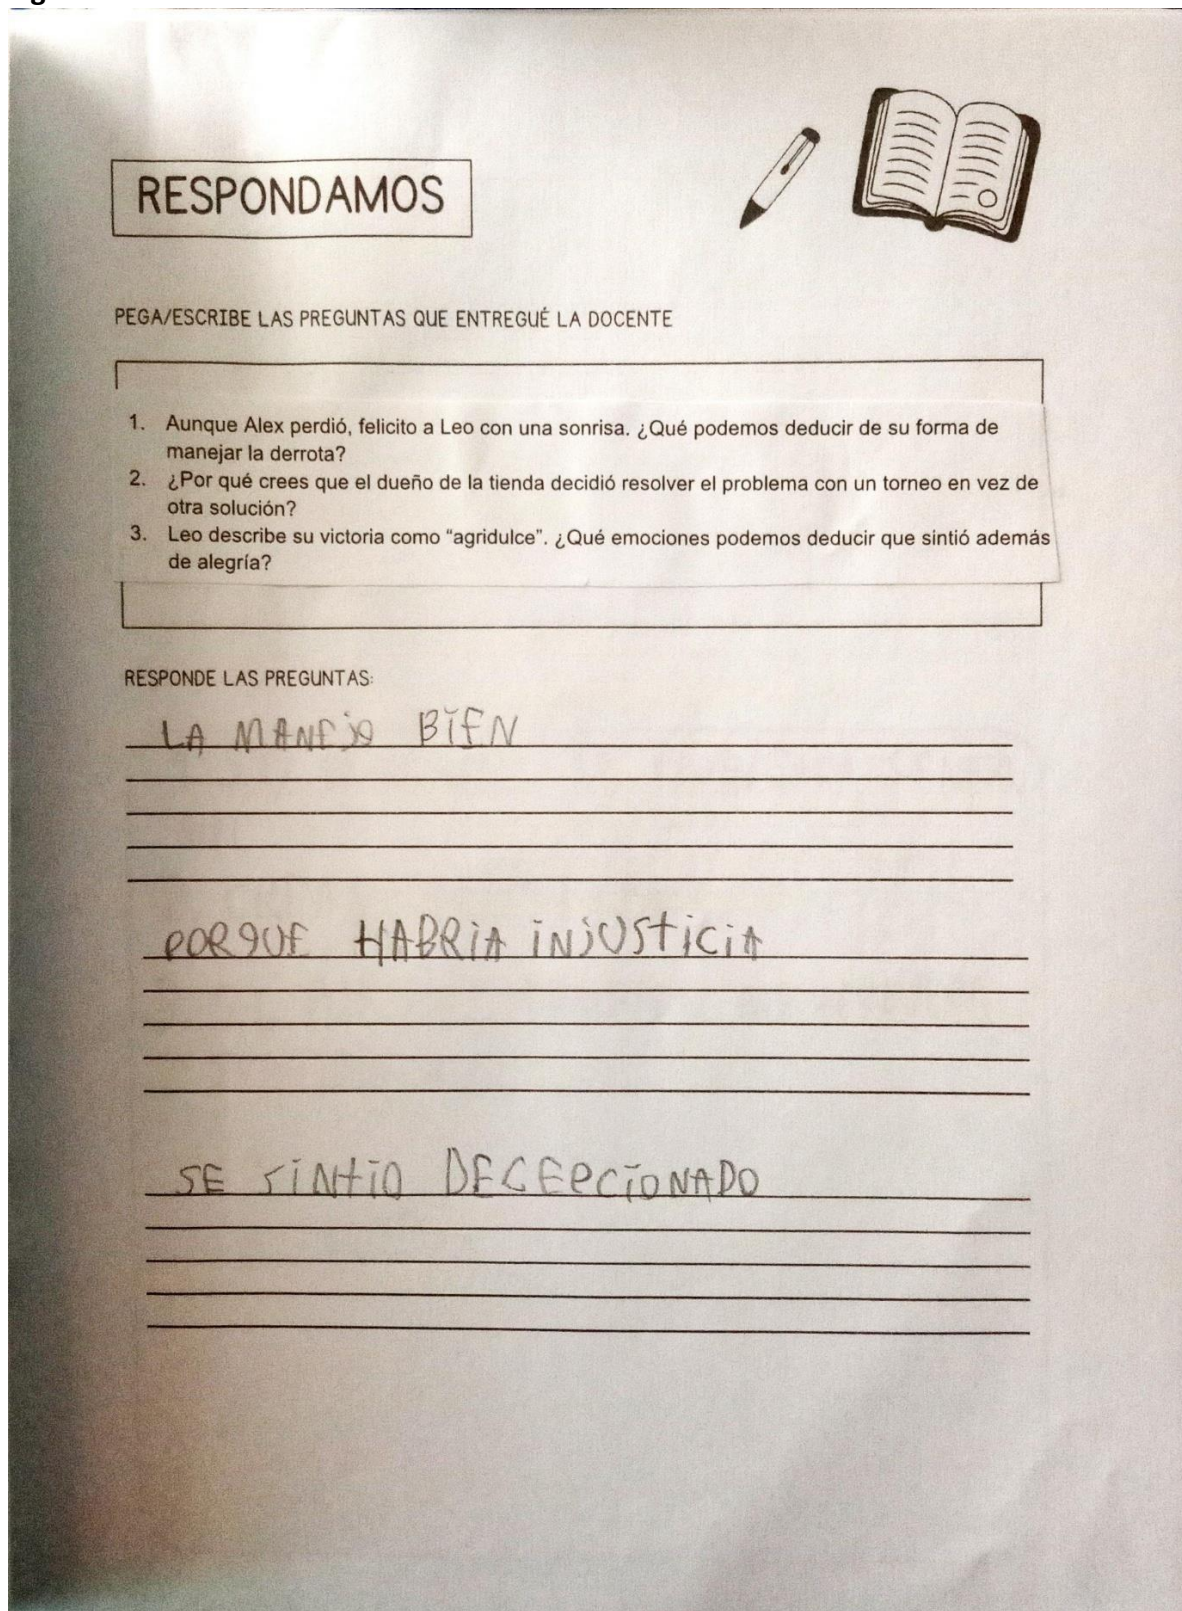 RESPONDAMOS
PEGA/ESCRIBE LAS PREGUNTAS QUE ENTREGUÉ LA DOCENTE
1. Aunque Alex perdió, felicito a Leo con una sonrisa. ¿Qué podemos deducir de su forma de
manejar la derrota?
2. ¿Por qué crees que el dueño de la tienda decidió resolver el problema con un torneo en vez de
otra solución?
3. Leo describe su victoria como “agridulce”. ¿Qué emociones podemos deducir que sintió además
de alegría?
RESPONDE LAS PREGUNTAS:
LA MANEJO BIEN
PORQUE HABRIA INJUSTICIA
SE SINTIO DECEPCIONADO